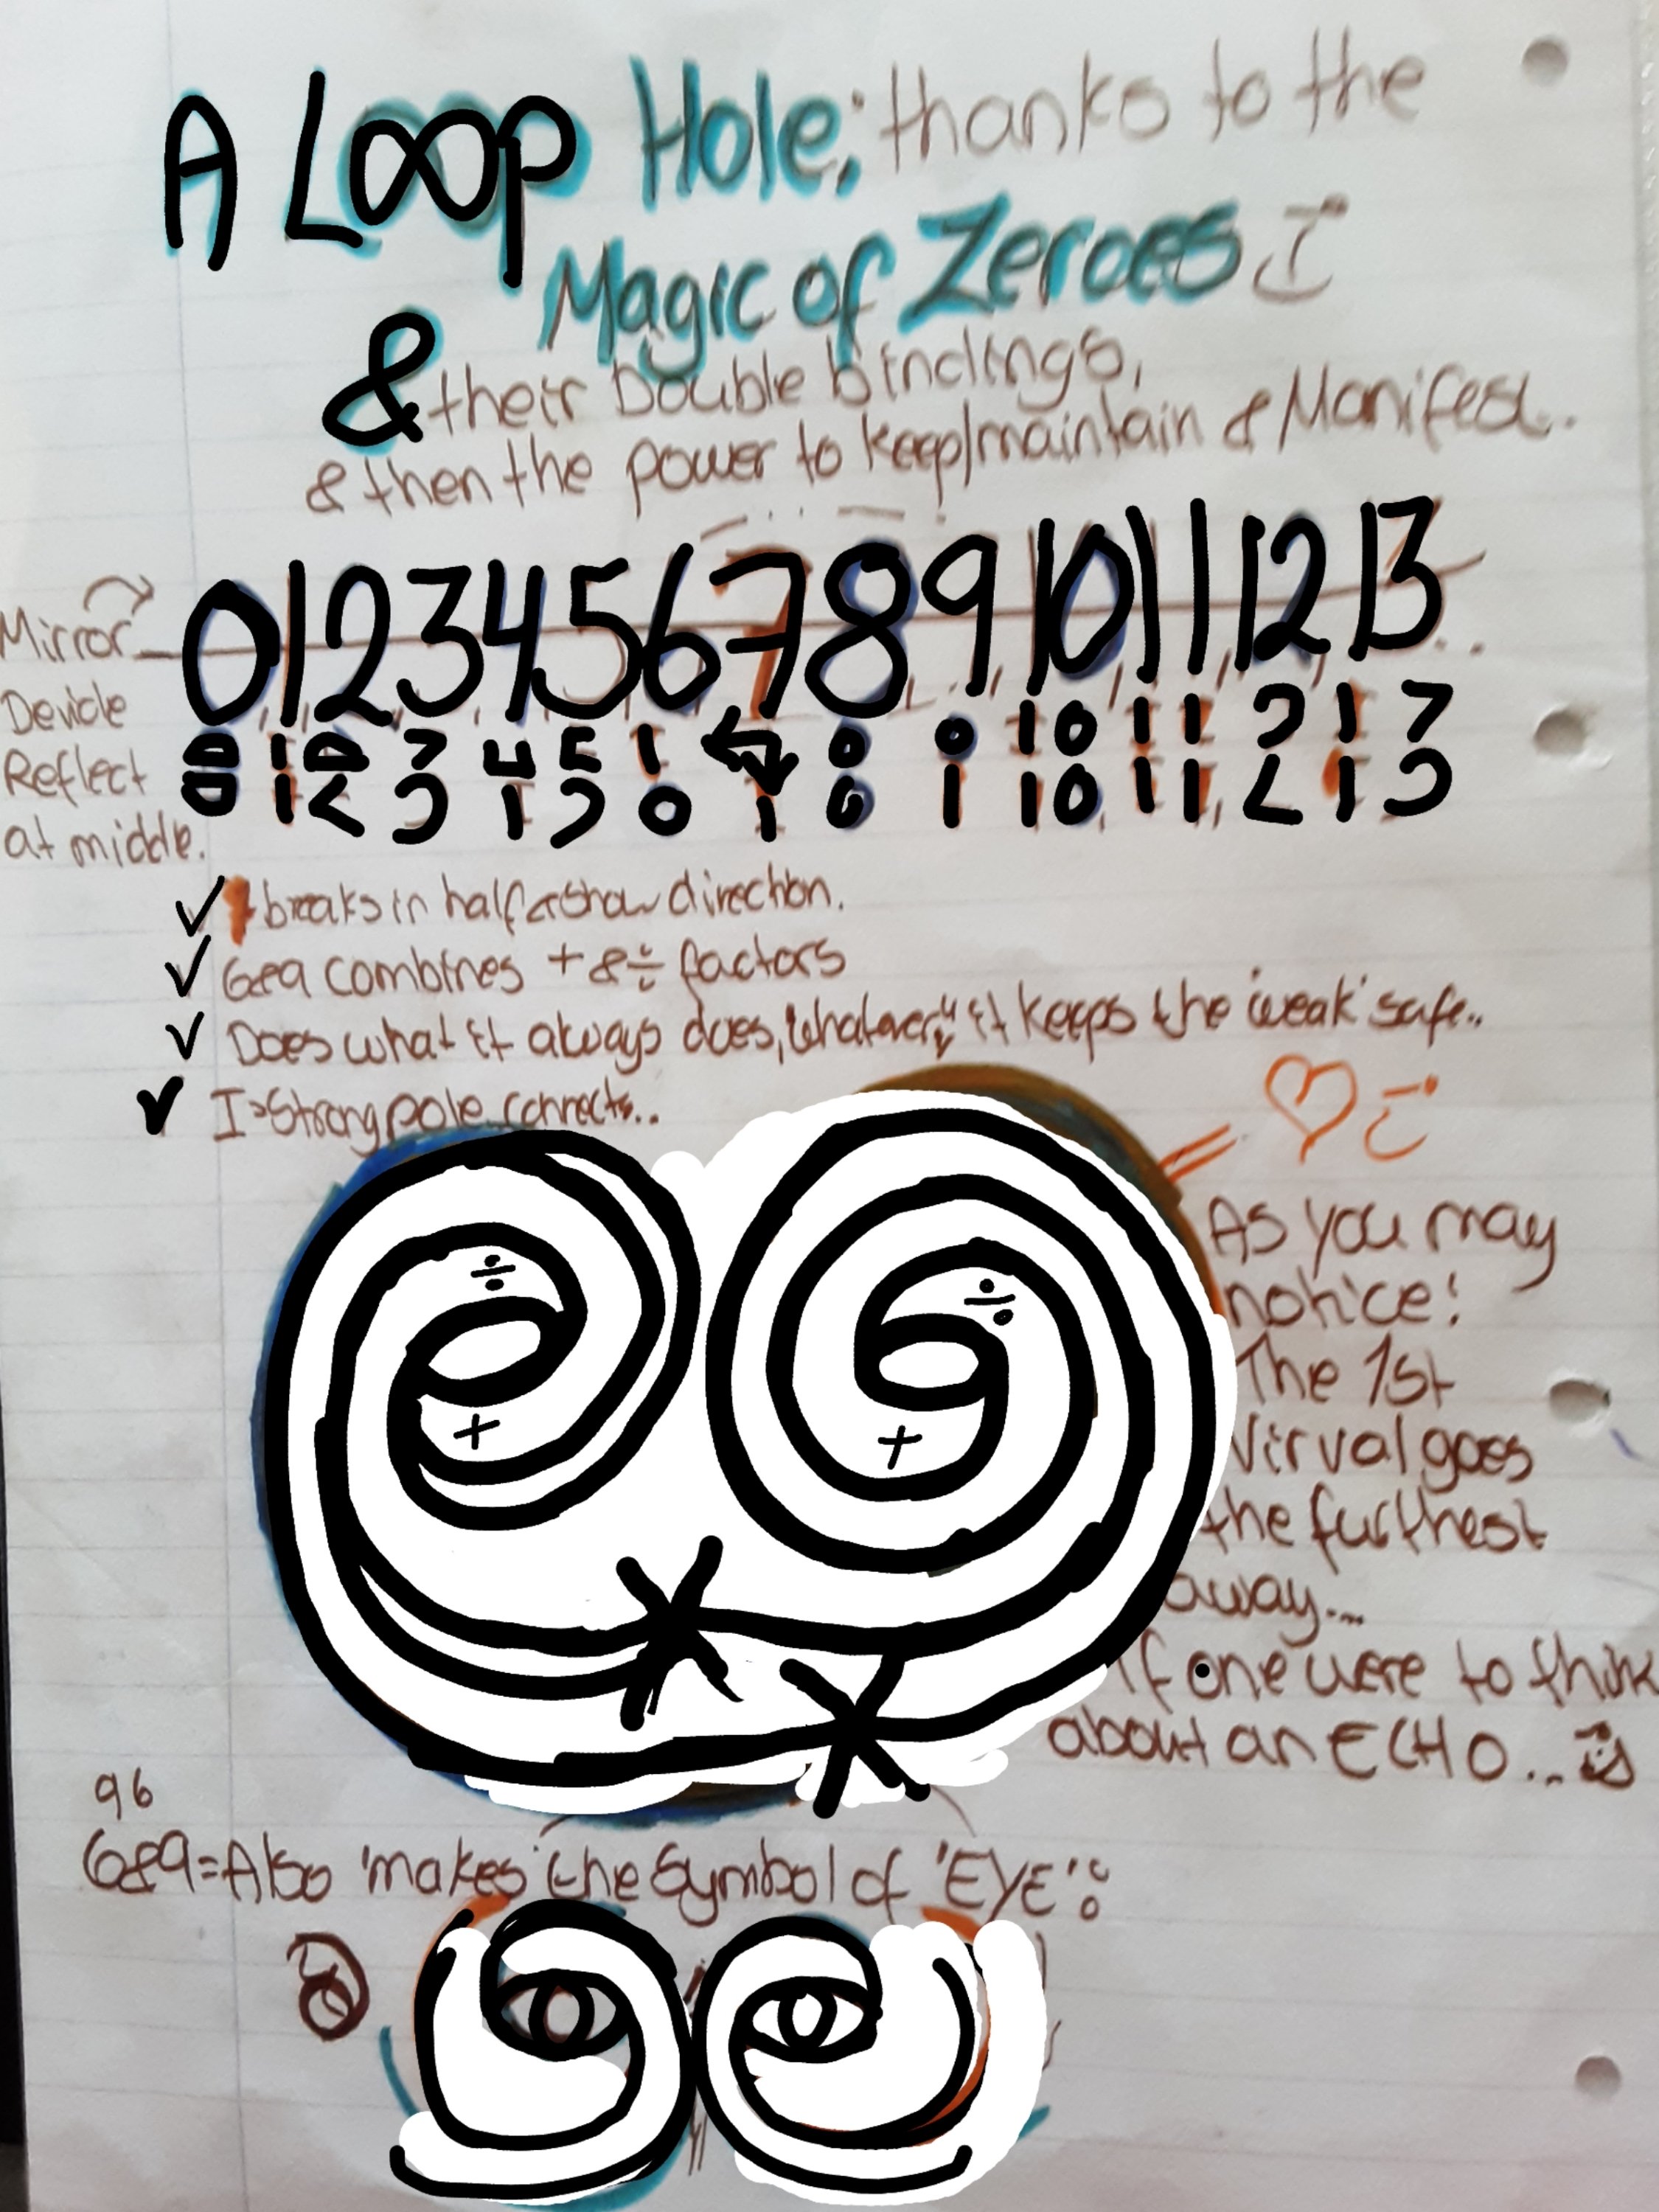 A LOOP Hole; thanks to the
Magic of Zeroes
& their Double bindings,
& then the power to keep/maintain & Manifest.
Mirror
Devide
Reflect
at middle.
0 1 2 3 4 5 6 7 8 9 10 11 12 13
✓ 7 breaks in half & show direction.
✓ 6&9 combines + & ÷ factors
✓ Does what it always does, whatever, it keeps the 'weak' safe..
✓ I = Strong pole connects..
÷ ÷
+ +
= ♡
As you may
notice:
The 1st
Virval goes
the furthest
away...
If one were to think
about an ECHO...
96
6&9 = Also 'makes' the Symbol of 'EYE':